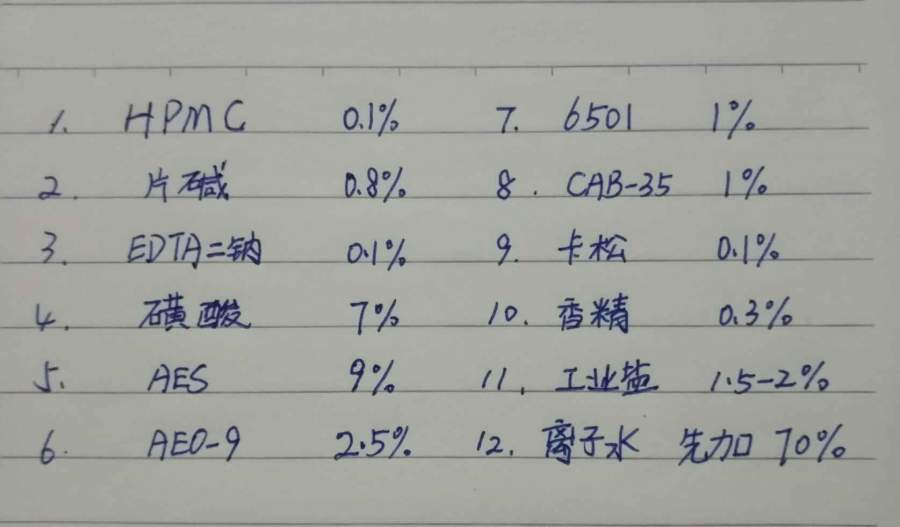 1. HPMC 0.1% 7. 6501 1%
2. 片碱 0.8% 8. CAB-35 1%
3. EDTA二钠 0.1% 9. 卡松 0.1%
4. 磺酸 7% 10. 香精 0.3%
5. AES 9% 11. 工业盐 1.5-2%
6. AEO-9 2.5% 12. 离子水 先加 70%